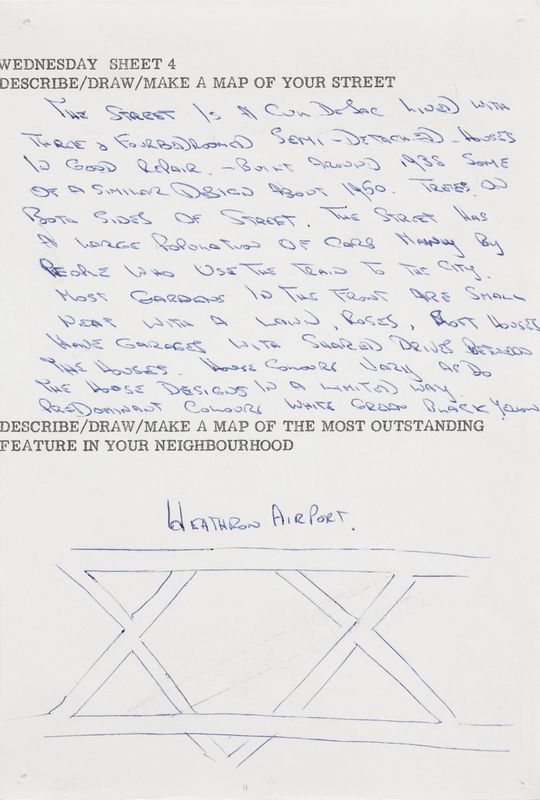 WEDNESDAY SHEET 4
DESCRIBE/DRAW/MAKE A MAP OF YOUR STREET
THE STREET IS A CUL DE SAC LINED WITH
THREE & FOUR BEDROOMED SEMI-DETACHED HOUSES
IN GOOD REPAIR. - BUILT AROUND 1938 SOME
OF A SIMILAR DESIGN ABOUT 1950. TREES ON
BOTH SIDES OF STREET. THE STREET HAS
A LARGE POPULATION OF CARS MAINLY BY
PEOPLE WHO USE THE TRAIN TO THE CITY.
MOST GARDENS IN THE FRONT ARE SMALL
NEAT WITH A LAWN, ROSES, MOST HOUSES
HAVE GARAGES WITH SHARED DRIVES BETWEEN
THE HOUSES. HOUSE COLOURS VARY AS DO
THE HOUSE DESIGNS IN A LIMITED WAY.
PREDOMINANT COLOURS WHITE GREEN BLACK YELLOW
DESCRIBE/DRAW/MAKE A MAP OF THE MOST OUTSTANDING
FEATURE IN YOUR NEIGHBOURHOOD
HEATHROW AIRPORT.